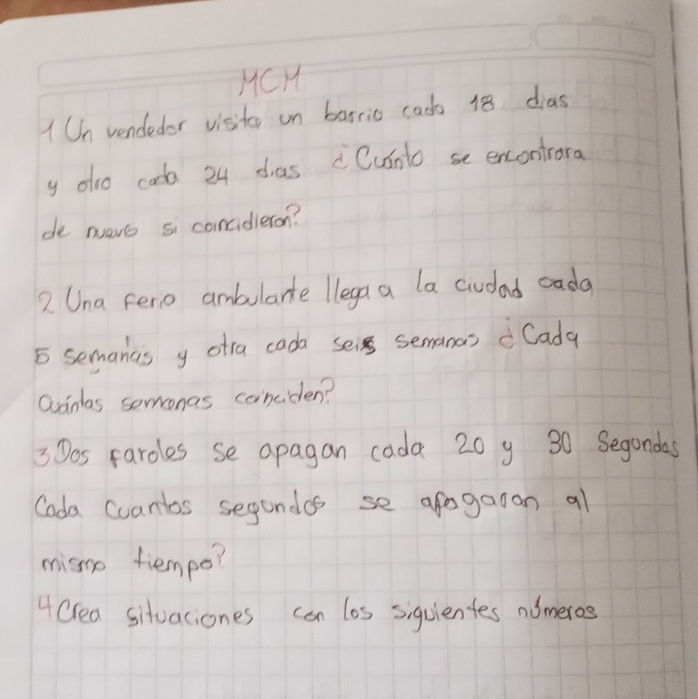 MCM
1 Un vendedor visita un barrio cada 18 dias
y otro cada 24 dias ¿Cuánto se encontrara
de nuevo si coincidieron?
2 Una feria ambulante llega a la ciudad cada
5 semanas y otra cada seis semanas ¿Cada
cuántas semanas coinciden?
3 Dos faroles se apagan cada 20 y 30 Segundos
Cada cuantos segundos se apagaran al
mismo tiempo?
4 Crea situaciones con los siguientes números